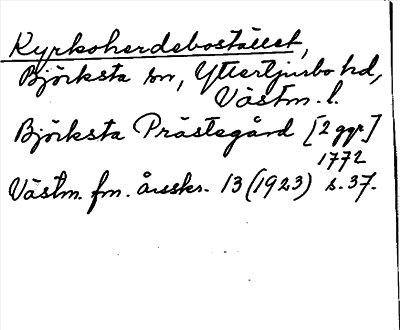 Kyrkoherdebostället,
Björksta sn, Yttertjurbo hd,
Västm. l.
Björksta Prästegård [2 ggr]
1772
Västm. fm. årsskr. 13 (1923) s. 37.